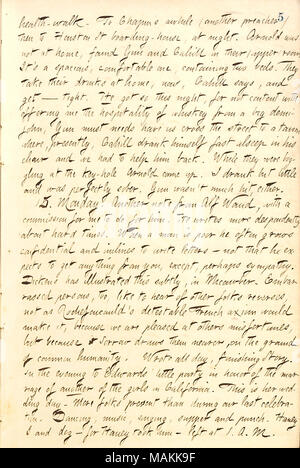 5
health-walk. To Chapin's awhile (another preacher)
then to Houston St boarding-house, at night. Arnold was
not at home, found Gun and Cahill in their upper room.
It's a spacious, comfortable one, containing two beds. They
take their drinks at home, now, Cahill says, and
get — tight. He got so this night, for not content with
offering me the hospitality of whiskey from a big demi-
john, Gun must needs have us cross the street to a tavern
where, presently, Cahill drank himself fast asleep in his
chair and we had to help him back. While they were big-
gling at the key-hole Arnold came up. I drank but little
and was perfectly sober. Gun wasn't much hit either.
15. Monday. Another note from Alf Waud, with a
commission for me to do for him. He writes more despondently
about hard times. When a man is poor he often grows
confidential and inclines to write letters — not that he ex-
pects to get anything from you, except, perhaps sympathy.
Dickens has illustrated this subtly, in Micawber. Embar-
rassed persons, too, like to hear of other folks reverses,
not as Rochefoucauld's detestable French axiom would
make it, because we are pleased at others misfortunes,
but because sorrow draws them nearer, on the ground
of common humanity. Wrote all day, finishing Story.
In the evening to Edwards' little party in honor of the mar-
riage of another of the girls in California. This is her wed-
ding day — More folks present than during our last celebra-
tion. Dancing, music, singing, supper and punch. Haney
I and Sey — for Haney took him — left at 1. A. M.
alamy
Image ID: MAKK9F
www.alamy.com